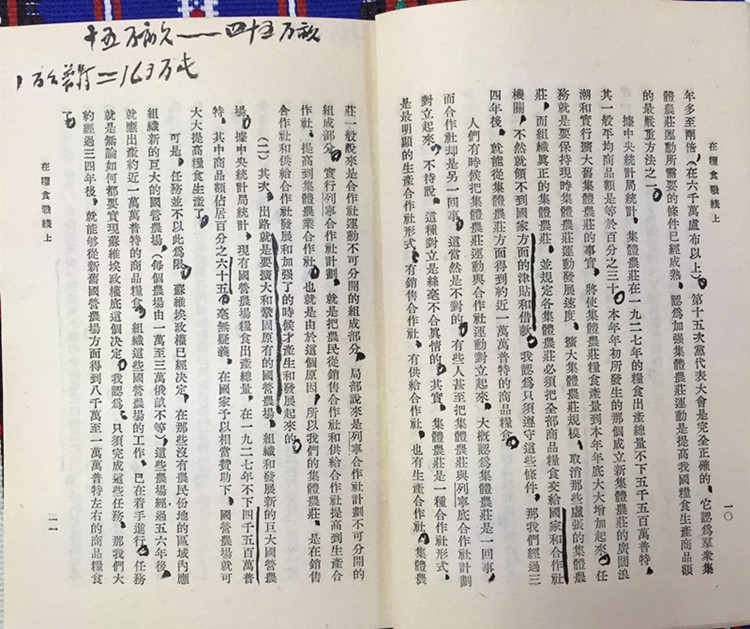 在糧食戰綫上
一〇
年多至兩倍，在六千萬盧布以上）。第十五次黨代表大會是完全正確的，它認爲羣衆集
體農莊運動所需要的條件已經成熟，認爲加强集體農莊運動是提高我國糧食生產商品額
的最嚴重方法之一。
據中央統計局統計，集體農莊在一九二七年的糧食出產總量不下五千五百萬普特，
其一般平均商品額是等於百分之三十。本年年初所發生的那個成立新集體農莊的廣闊浪
潮和實行擴大舊集體農莊的事實，將使集體農莊糧食產量到本年年底大大增加起來。任
務就是要保持現時集體農莊運動發展速度，擴大集體農莊規模，取消那些虛張的集體農
莊，而組織真正的集體農莊，並規定各集體農莊必須把全部商品糧食交給國家和合作社
機關，不然就領不到國家方面的津貼和借款。我認爲只須遵守這些條件，那我們經過三
四年後，就能從集體農莊方面得到約近一萬萬普特的商品糧食。
人們有時候把集體農莊運動與合作社運動對立起來，大概認爲集體農莊是一回事，
而合作社却是另一回事。這當然是不對的。有些人甚至把集體農莊與列寧底合作社計劃
對立起來。不待說，這種對立是絲毫不合眞情的。其實，集體農莊是一種合作社形式，
是最明顯的生產合作社形式。有銷售合作社，有供給合作社，也有生產合作社。集體農
十五万亩——四十五万亩
1万万普特=163万吨
莊一般說來是合作社運動不可分開的組成部分，局部說來是列寧合作社計劃不可分開的
組成部分。實行列寧合作社計劃，就是把農民從銷售合作社和供給合作社提高到生產合
作社，提高到集體農業合作社。也就是由於這個原因，所以我們的集體農莊，是在銷售
合作社和供給合作社發展和加强了的時候才產生和發展起來的。
（二）其次，出路就是要擴大和鞏固原有的國營農場，組織和發展新的巨大國營農
場。據中央統計局統計，現有國營農場糧食出產總量，在一九二七年不下四千五百萬普
特，其中商品額佔居百分之六十五。毫無疑義，在國家予以相當贊助下，國營農場就可
大大提高糧食生產了。
可是，任務並不以此爲限。蘇維埃政權已經決定，在那些沒有農民份地的區域內應
組織新的巨大的國營農場，（每個農場由一萬至三萬俄畝不等），這些農場經過五六年後，
就應出產約近一萬萬普特的商品糧食。組織這些國營農場的工作，已在着手進行。任務
就是無論如何都要實現蘇維埃政權底這個決定。我認爲，只須完成這些任務，那我們大
約經過三四年後，就能够從新舊國營農場方面得到八千萬至一萬萬普特左右的商品糧食
了。
在糧食戰綫上
一一